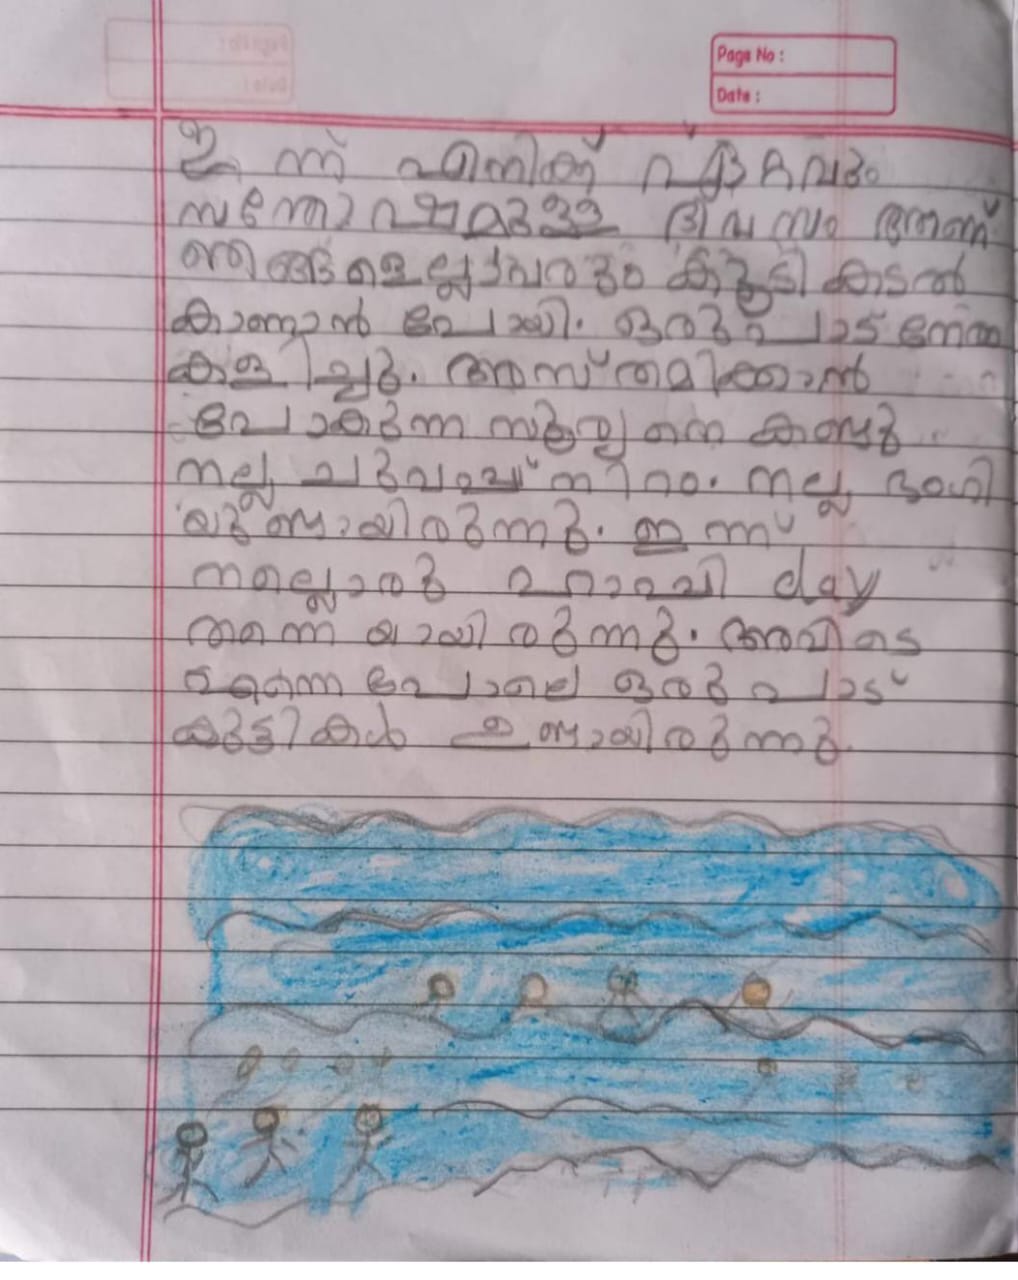 Page No :
Date :
ഇന്ന് എനിക്ക് ഏറ്റവും
സന്തോഷമുള്ള ദിവസം ആണ്
ഞങ്ങളെല്ലാവരും കൂടി കടൽ
കാണാൻ പോയി. ഒരുപാട് നേരം
കളിച്ചു. അസ്തമിക്കാൻ
പോകുന്ന സൂര്യനെ കണ്ടു
നല്ല ചുവപ്പ് നിറം. നല്ല ഭംഗി
യുണ്ടായിരുന്നു. ഇന്ന്
നല്ലൊരു ഹാപ്പി day
തന്നെ യായിരുന്നു. അവിടെ
എന്നെ പോലെ ഒരുപാട്
കുട്ടികൾ ഉണ്ടായിരുന്നു.